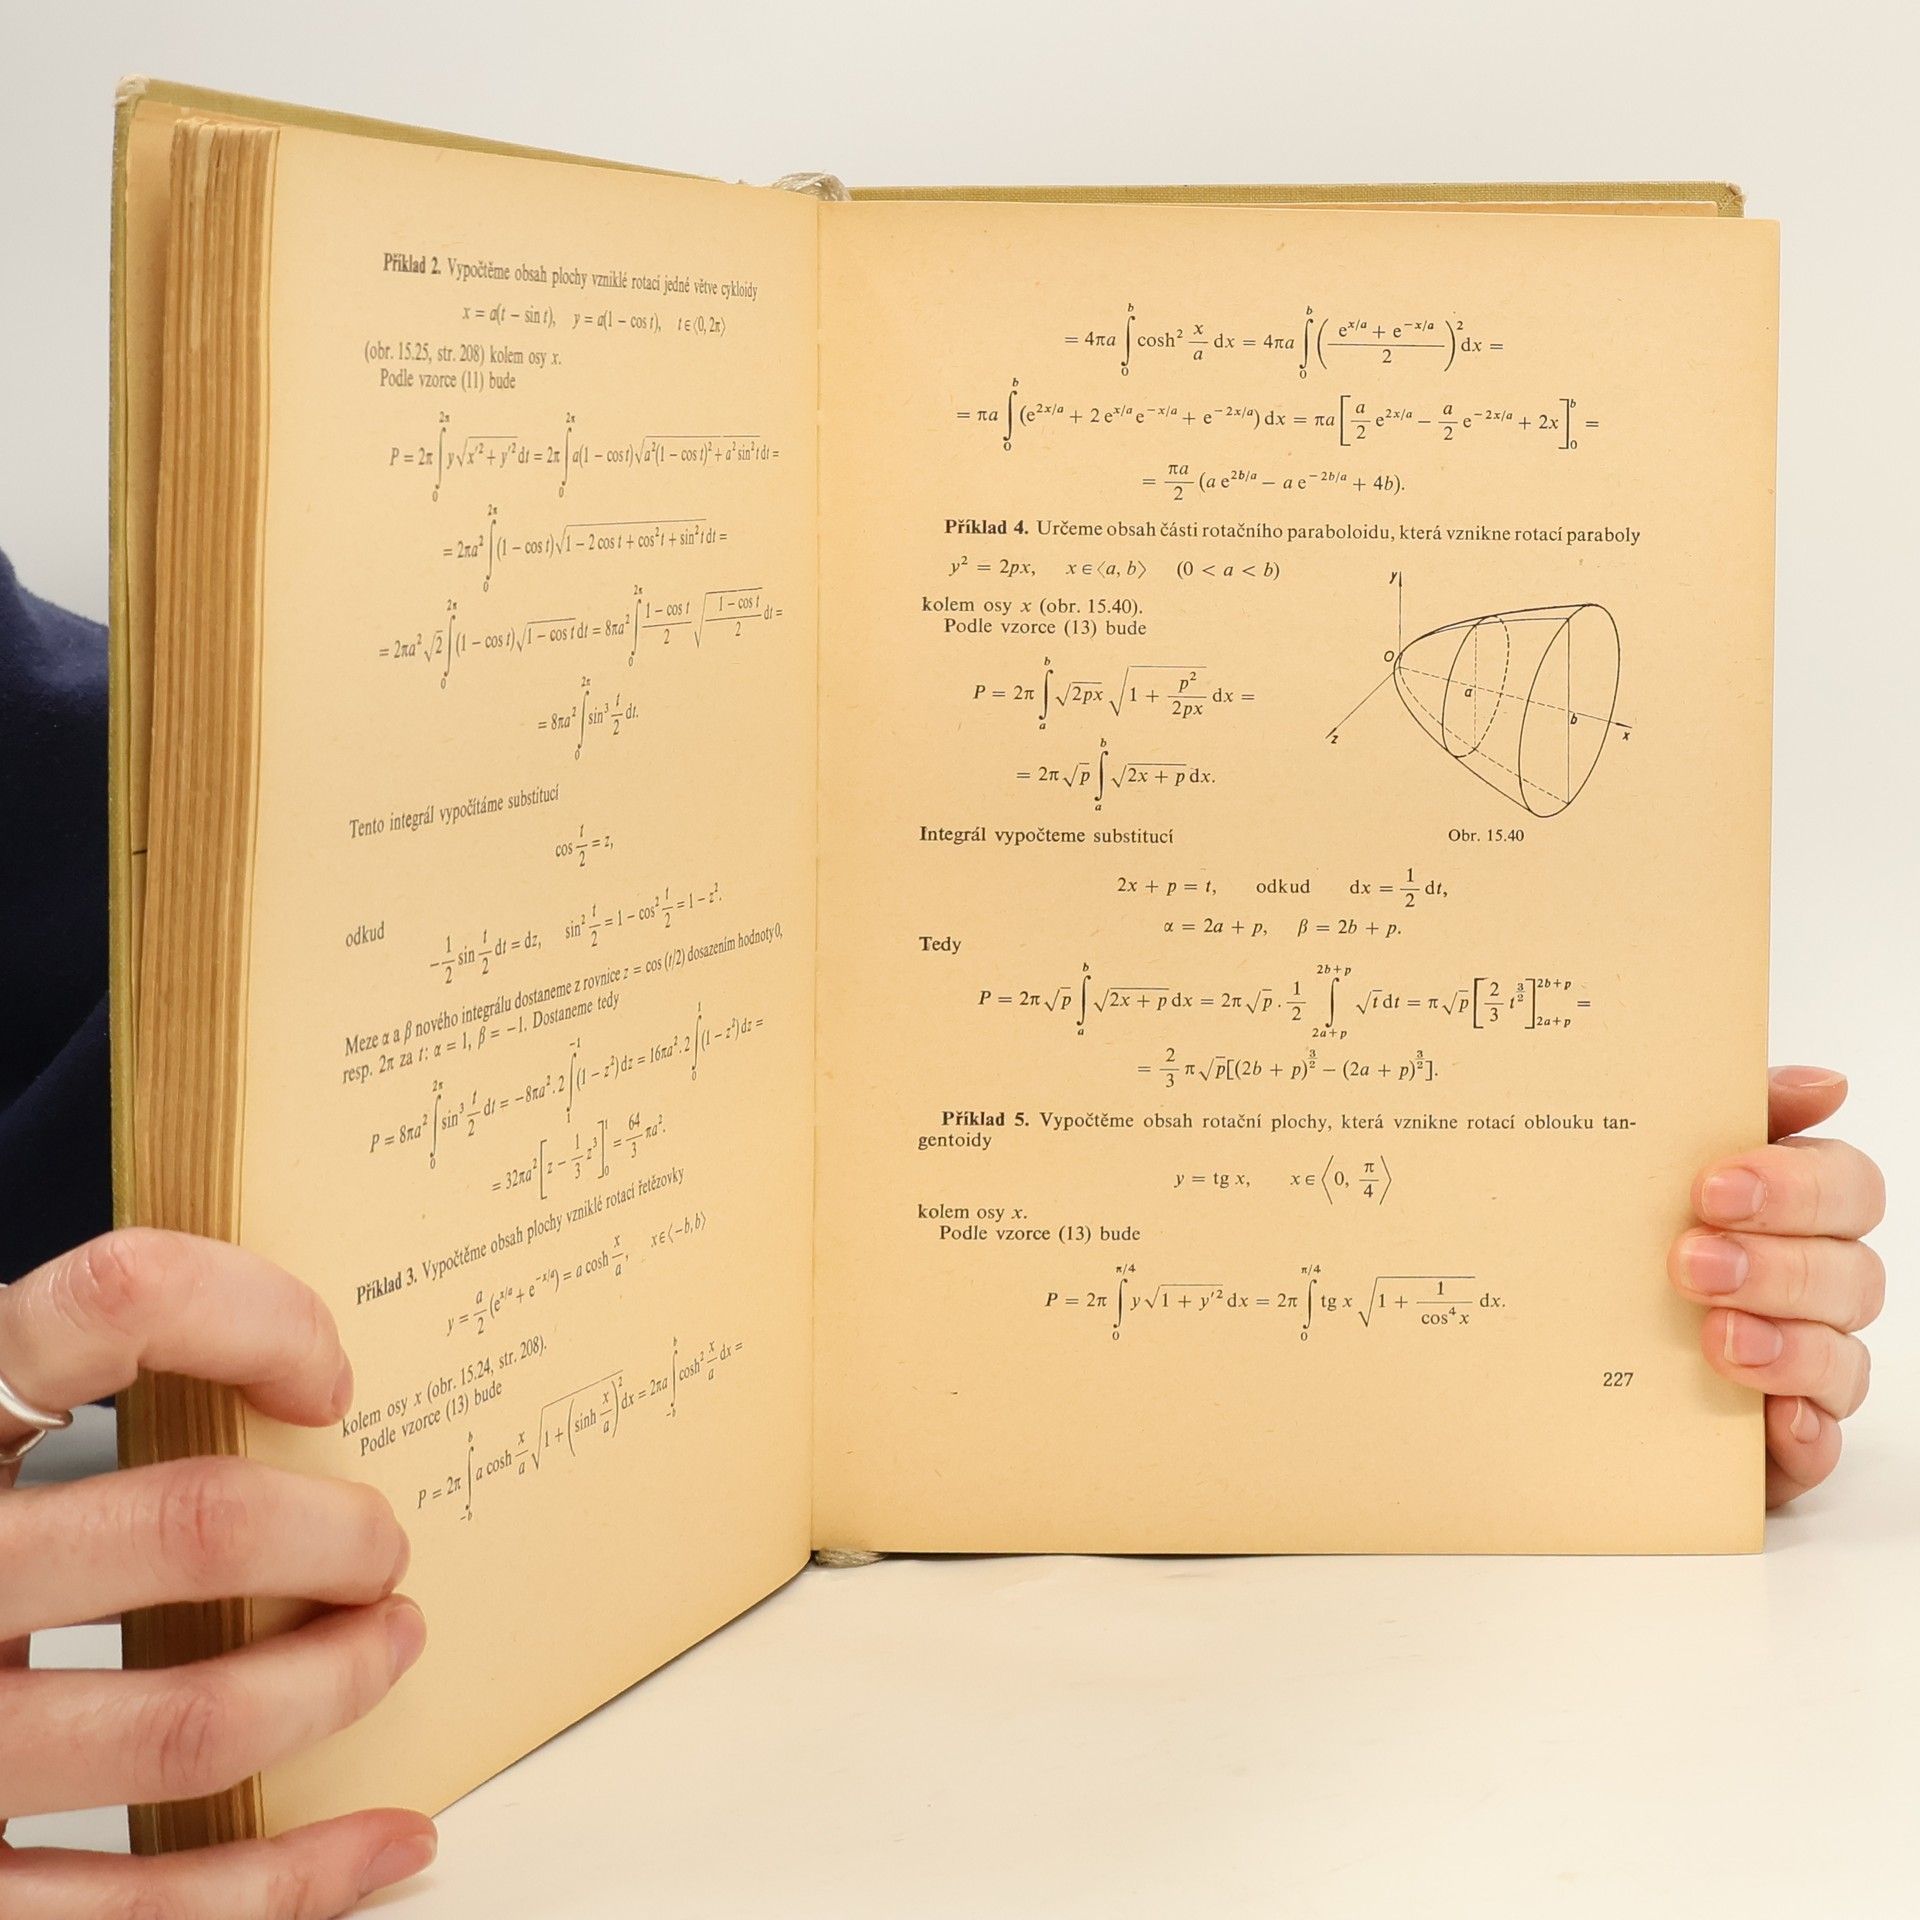 Příklad 2. Vypočtěme obsah plochy vzniklé rotací jedné větve cykloidy
x = a(t − sin t), y = a(1 − cos t), t ∈ ⟨0, 2π⟩
(obr. 15.25, str. 208) kolem osy x.
Podle vzorce (11) bude
P = 2π ∫₀^{2π} y√(x′² + y′²) dt = 2π ∫₀^{2π} a(1 − cos t)√(a²(1 − cos t)² + a² sin² t) dt =
= 2πa² ∫₀^{2π} (1 − cos t)√(1 − 2 cos t + cos² t + sin² t) dt =
= 2πa² √2 ∫₀^{2π} (1 − cos t)√(1 − cos t) dt = 8πa² ∫₀^{2π} (1 − cos t)/2 √((1 − cos t)/2) dt =
= 8πa² ∫₀^{2π} sin³ t/2 dt.
Tento integrál vypočítáme substitucí
cos t/2 = z,
odkud
−1/2 sin t/2 dt = dz, sin² t/2 = 1 − cos² t/2 = 1 − z².
Meze α a β nového integrálu dostaneme z rovnice z = cos (t/2) dosazením hodnoty 0,
resp. 2π za t: α = 1, β = −1. Dostaneme tedy
P = 8πa² ∫₀^{2π} sin³ t/2 dt = −8πa² . 2 ∫₁^{−1} (1 − z²) dz = 16πa² . 2 ∫₀^1 (1 − z²) dz =
= 32πa² [z − 1/3 z³]₀^1 = 64/3 πa².
Příklad 3. Vypočtěme obsah plochy vzniklé rotací řetězovky
y = a/2 (e^{x/a} + e^{−x/a}) = a cosh x/a, x ∈ ⟨−b, b⟩
kolem osy x (obr. 15.24, str. 208).
Podle vzorce (13) bude
P = 2π ∫_{−b}^b a cosh x/a √(1 + (sinh x/a)²) dx = 2πa ∫_{−b}^b cosh² x/a dx =
= 4πa ∫₀^b cosh² x/a dx = 4πa ∫₀^b ((e^{x/a} + e^{−x/a})/2)² dx =
= πa ∫₀^b (e^{2x/a} + 2 e^{x/a} e^{−x/a} + e^{−2x/a}) dx = πa [a/2 e^{2x/a} − a/2 e^{−2x/a} + 2x]₀^b =
= πa/2 (a e^{2b/a} − a e^{−2b/a} + 4b).
Příklad 4. Určeme obsah části rotačního paraboloidu, která vznikne rotací paraboly
y² = 2px, x ∈ ⟨a, b⟩ (0 < a < b)
kolem osy x (obr. 15.40).
Podle vzorce (13) bude
P = 2π ∫_a^b √(2px) √(1 + p²/(2px)) dx =
= 2π √p ∫_a^b √(2x + p) dx.
y
O
a
b
z
x
Obr. 15.40
Integrál vypočteme substitucí
2x + p = t, odkud dx = 1/2 dt,
α = 2a + p, β = 2b + p.
Tedy
P = 2π √p ∫_a^b √(2x + p) dx = 2π √p . 1/2 ∫_{2a+p}^{2b+p} √t dt = π √p [2/3 t^{3/2}]_{2a+p}^{2b+p} =
= 2/3 π √p[(2b + p)^{3/2} − (2a + p)^{3/2}].
Příklad 5. Vypočtěme obsah rotační plochy, která vznikne rotací oblouku tan-
gentoidy
y = tg x, x ∈ ⟨0, π/4⟩
kolem osy x.
Podle vzorce (13) bude
P = 2π ∫₀^{π/4} y√(1 + y′²) dx = 2π ∫₀^{π/4} tg x √(1 + 1/cos⁴ x) dx.
227